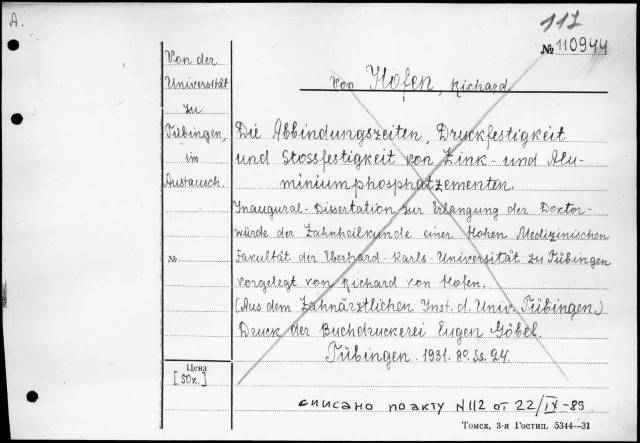 A.
117
№ 110944
Von der
Universität
zu
Tübingen,
im
Austausch.
von Hofen, Richard
Die Abbindungszeiten, Druckfestigkeit
und Stossfestigkeit von Zink- und Alu-
miniumphosphatzementen.
Inaugural-Dissertation zur Erlangung der Doktor-
würde der Zahnheilkunde einer Hohen Medizinischen
№
Fakultät der Eberhard-Karls-Universität zu Tübingen
vorgelegt von Richard von Hofen.
(Aus dem Zahnärztlichen Inst. d. Univ. Tübingen.)
Druck der Buchdruckerei Eugen Göbel.
Tübingen. 1931. 8°. Ss. 24.
Цена
[50к.]
списано по акту N 112 от 22/IX-83
Томск, 3-я Гостип. 5344—31